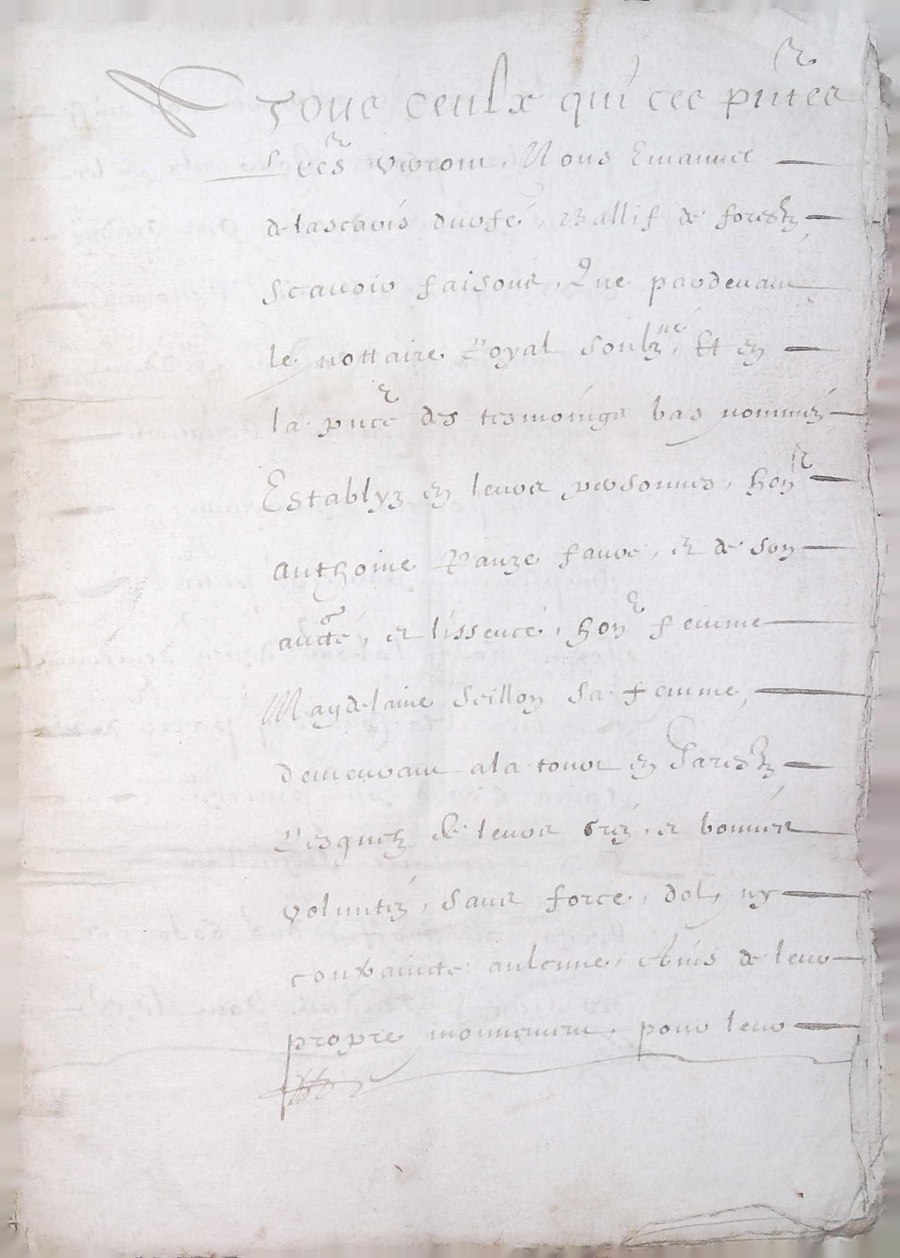 A Tous ceulx qui ces pntes
lres verront, Nous Emanuel
de lascaris durfé, Ballif de forestz,
Scavoir faisons, Que pardevant
le nottaire Royal soubzné, Et en
la pnce des tesmoings bas nommez
Establyz en leurs personnes, hon
Anthoine Pauze favre, et de son
aucté, et lissence, hon femme
Maydelaine Seillon sa femme,
demeurant a la tour en Jarestz
Lesquelz de leurs grez, et bonnes
voluntez, sans force, dol, ny
contraincte aulcune, Ains de leur
propre mouvement, pour leur